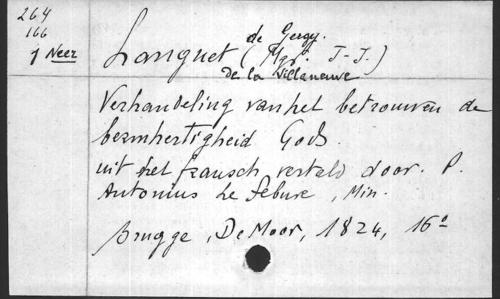 264
166
1 Neer
de Gergy.
Languet (Mgr. J-J.)
de la Villeneuve
Verhandeling van het betrouwen de
bermhertigheid Gods.
uit het fransch vertald door. P.
Antonius Le Febure, Min.
Brugge, De Moor, 1824, 16°